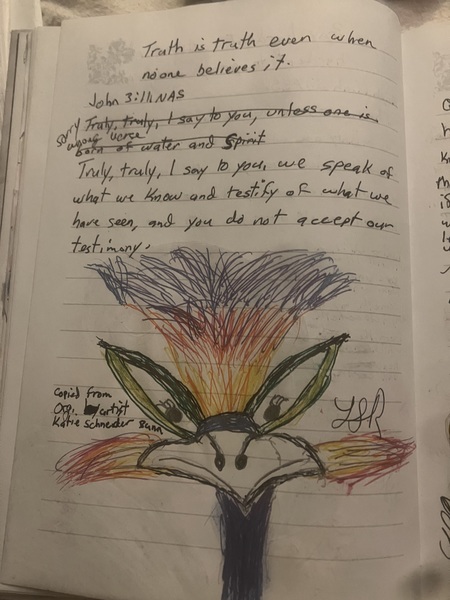 Truth is truth even when
no one believes it.
John 3:11 NAS
Truly, truly, I say to you, unless one is
sorry
wrong verse
born of water and Spirit
Truly, truly, I say to you, we speak of
what we know and testify of what we
have seen, and you do not accept our
testimony.
Copied from
Orgi. artist
Katie Schneider